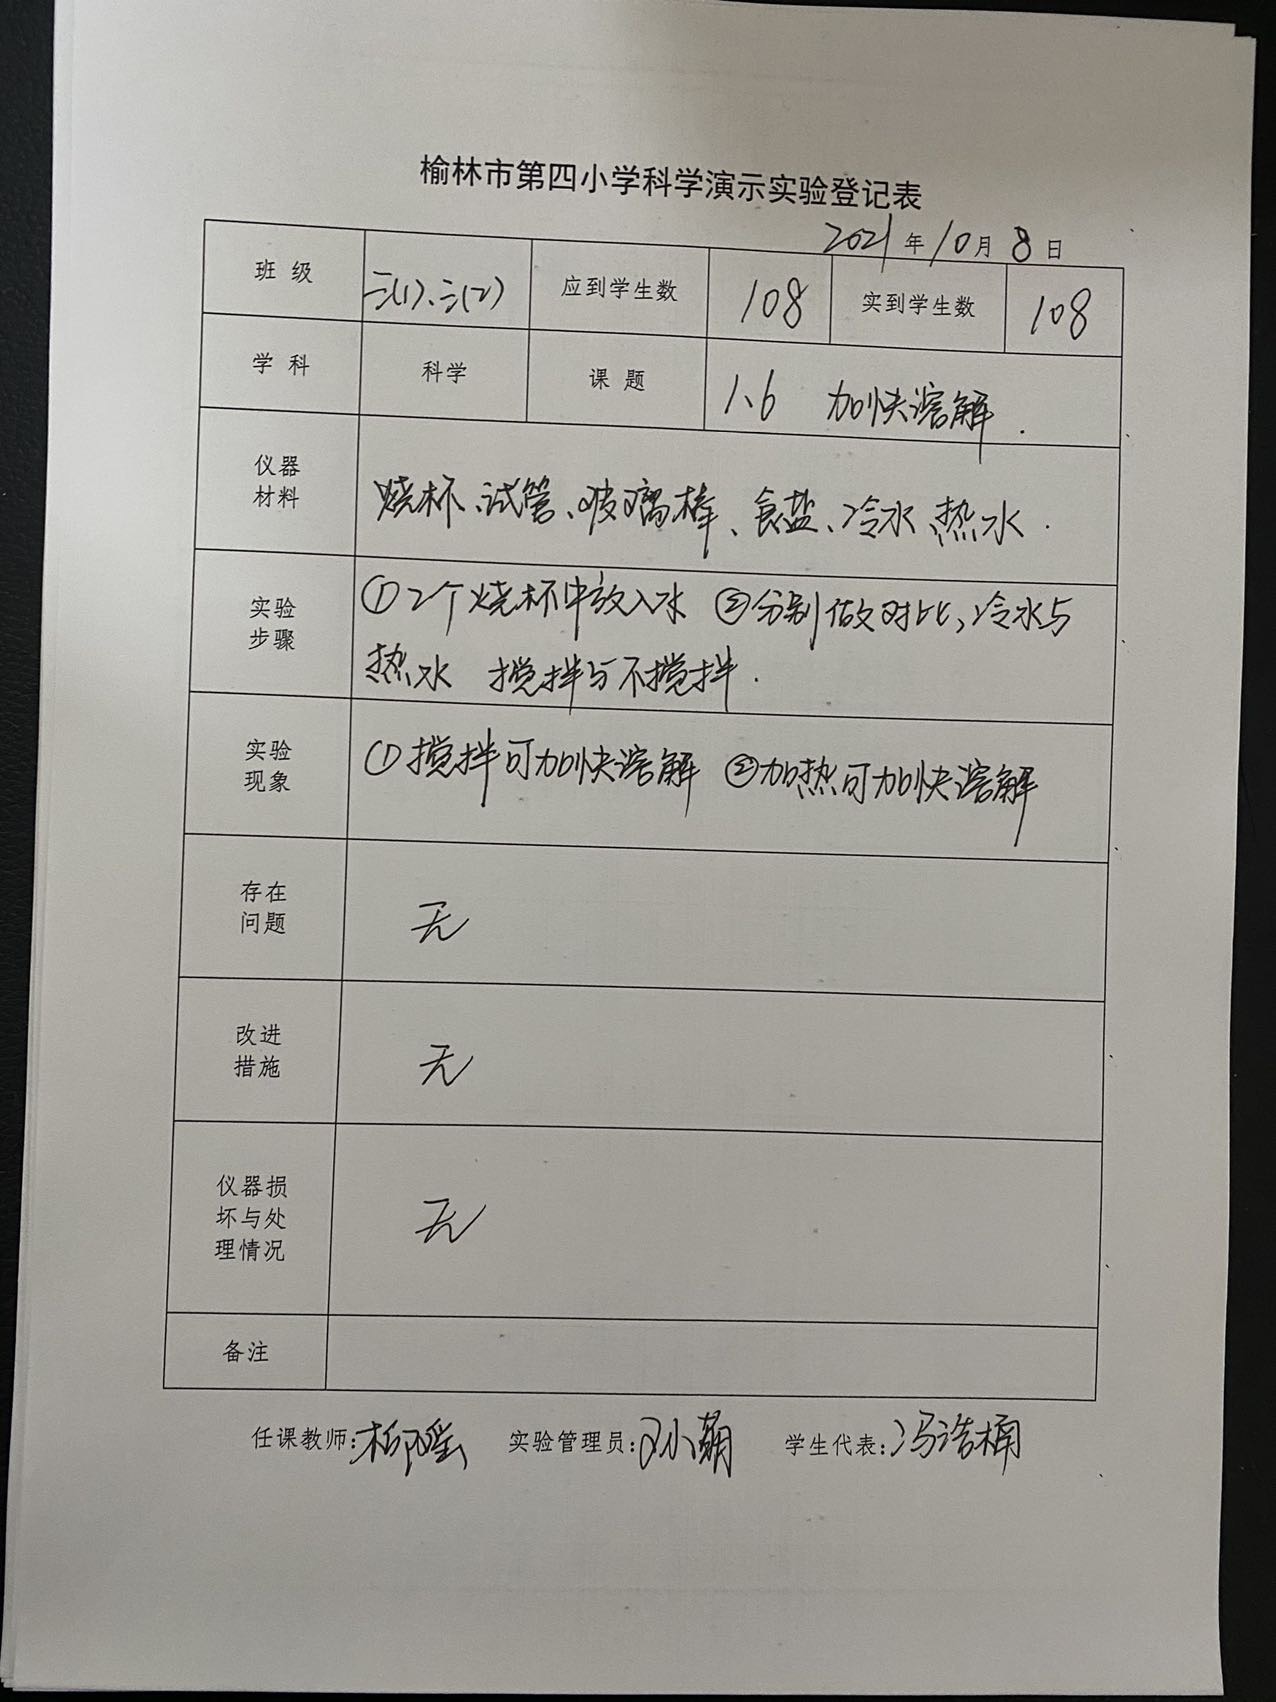 榆林市第四小学科学演示实验登记表
2021年10月8日
班 级 三(1)、三(2) 应到学生数 108 实到学生数 108
学 科 科学 课 题 1、6 加快溶解.
仪器
材料
烧杯、试管、玻璃棒、食盐、冷水、热水.
实验
步骤
①2个烧杯中放入水 ②分别做对比,冷水与
热水 搅拌与不搅拌.
实验
现象
①搅拌可加快溶解 ②加热可加快溶解
存在
问题
无
改进
措施
无
仪器损
坏与处
理情况
无
备注
任课教师:柳瑶 实验管理员: 学生代表:冯浩楠